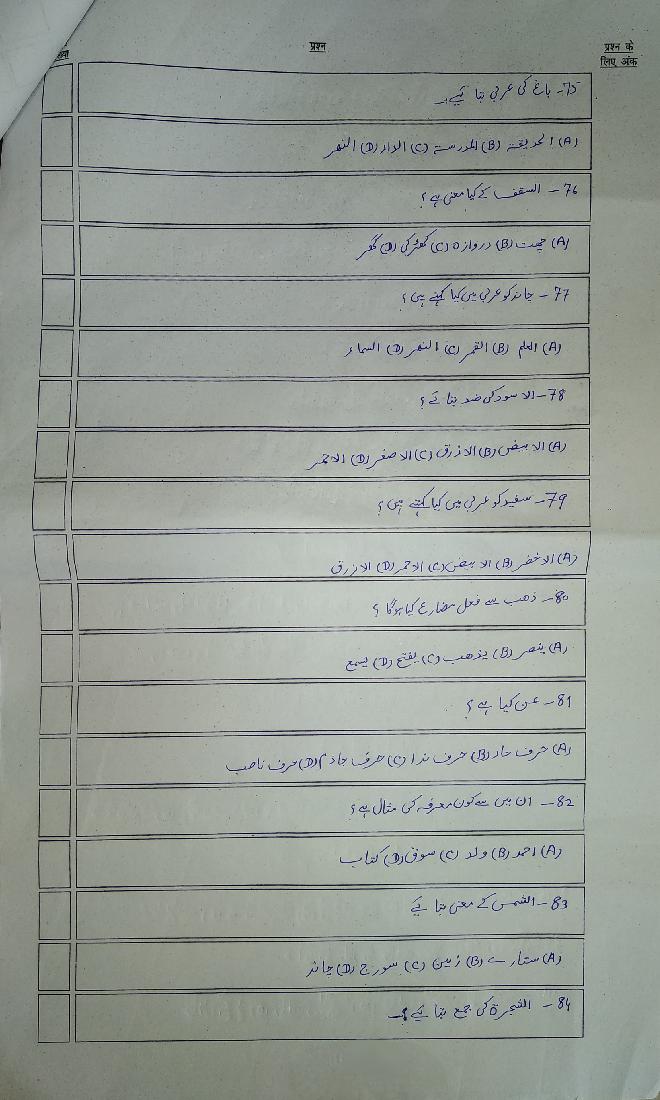 ख्या
प्रश्न
प्रश्न के
लिए अंक
75- باغ کی عربی بتائیے۔
(A) الحدیقۃ (B) المدرسۃ (C) الدار (D) النھر
76- السقف کے کیا معنی ہے؟
(A) چھت (B) دروازہ (C) کھڑکی (D) گھر
77- چاند کو عربی میں کیا کہتے ہیں؟
(A) العلم (B) القمر (C) النھر (D) السماء
78- الاسود کی ضد بتائے؟
(A) الابیض (B) الازرق (C) الاصفر (D) الاحمر
79- سفید کو عربی میں کیا کہتے ہیں؟
(A) الاخضر (B) الابیض (C) الاحمر (D) الازرق
80- ذھب سے فعل مضارع کیا ہوگا؟
(A) ینصر (B) یذھب (C) یفتح (D) یسمع
81- عن کیا ہے؟
(A) حرف جار (B) حرف ندا (C) حرف جازم (D) حرف ناصب
82- ان میں سے کون معرفہ کی مثال ہے؟
(A) احمد (B) ولد (C) سوق (D) کتاب
83- الشمس کے معنی بتائیے
(A) ستارے (B) زمین (C) سورج (D) چاند
84- الشجرۃ کی جمع بتائیے؟